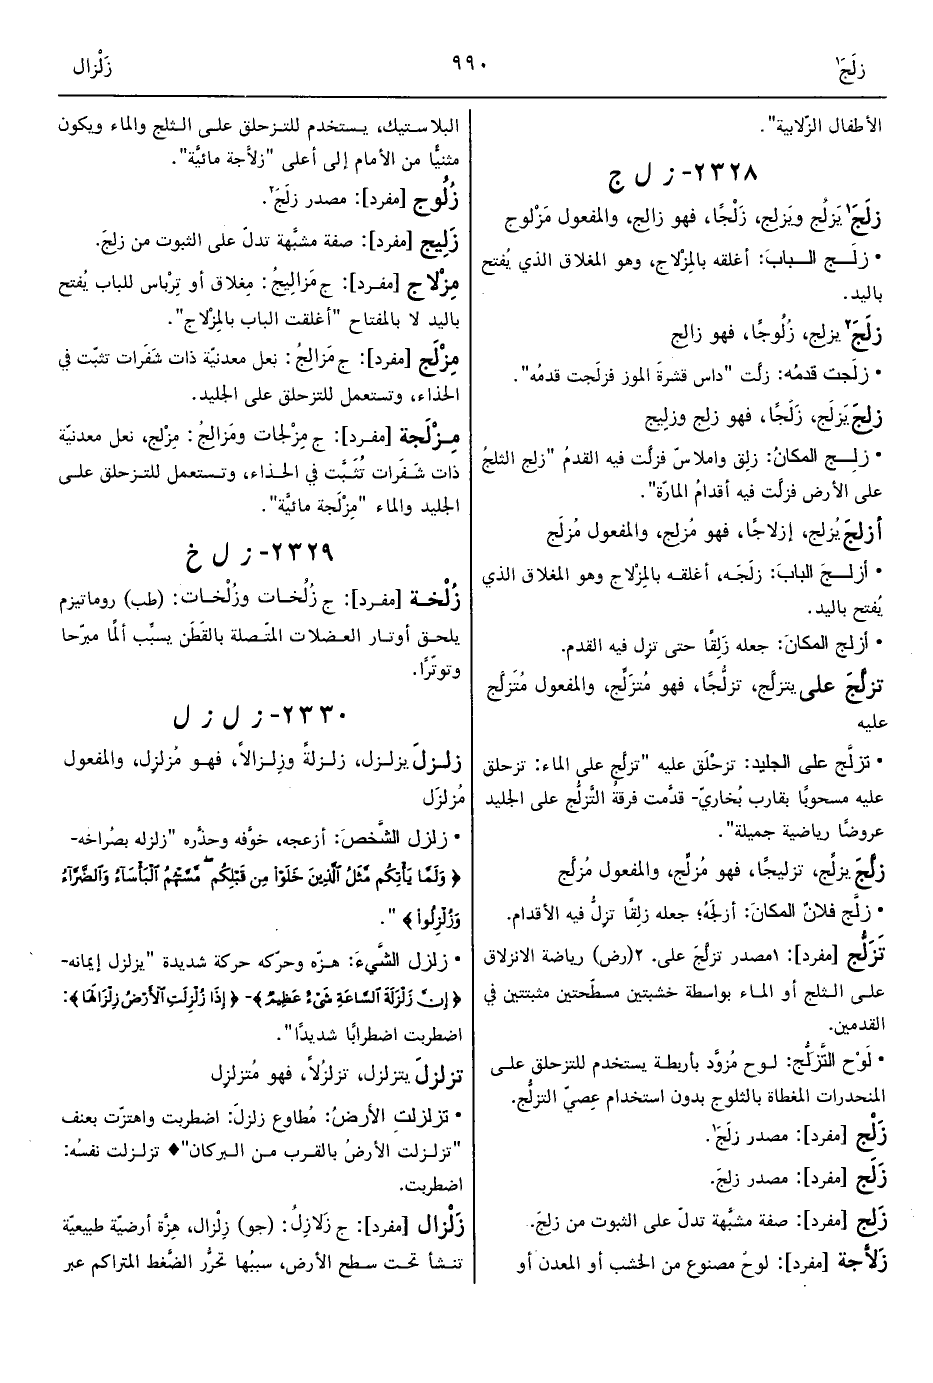 زلَجَ١
٩٩٠
زَلْزال
الأطفال الزّلابية".
٢٣٢٨- ز ل ج
زلَجَ١ يَزلُج ويَزلِج، زَلْجًا، فهو زالِج، والمفعول مَزْلوج
• زلَج البابَ: أغلقه بالمِزْلاج، وهو المغلاق الذي يُفتح
باليد.
زلَجَ٢ يزلِج، زُلُوجًا، فهو زالِج
• زلَجت قدمُه: زلَّت "داس قشرةَ الموز فزلَجت قدمُه".
زلِجَ يَزلَج، زَلَجًا، فهو زلِج وزليج
• زلِج المكانُ: زلِق واملاسّ فزلَّت فيه القدمُ "زلِج الثلجُ
على الأرض فزلَّت فيه أقدامُ المارّة".
أزلجَ يُزلج، إزلاجًا، فهو مُزلِج، والمفعول مُزلَج
• أزلجَ البابَ: زلَجَه، أغلقه بالمِزلاج وهو المغلاق الذي
يُفتح باليد.
• أزلج المكانَ: جعله زَلِقًا حتى تزل فيه القدم.
تزلَّجَ على يتزلَّج، تزلُّجًا، فهو مُتزَلِّج، والمفعول مُتَزلَّج
عليه
• تزلَّج على الجليد: تزحْلَق عليه "تزلَّج على الماء: تزحلق
عليه مسحوبًا بقارب بُخاريّ- قدَّمت فرقةُ التَّزلُّج على الجليد
عروضًا رياضية جميلة".
زلَّجَ يزلِّج، تزليجًا، فهو مُزلِّج، والمفعول مُزلَّج
• زلَّج فلانٌ المكانَ: أزلجَهُ؛ جعله زلِقًا تزلُّ فيه الأقدام.
تَزَلُّج [مفرد]: ١مصدر تزلَّجَ على. ٢(رض) رياضة الانزلاق
على الثلج أو الماء بواسطة خشبتين مسطّحتين مثبتتين في
القدمين.
• لَوْح التَّزلُّج: لوح مُزوَّد بأربطة يستخدم للتزحلق على
المنحدرات المغطاة بالثلوج بدون استخدام عِصِيّ التزلُّج.
زَلْج [مفرد]: مصدر زلَجَ١.
زَلَج [مفرد]: مصدر زلِجَ.
زَلِج [مفرد]: صفة مشبَّهة تدلّ على الثبوت من زلِجَ.
زلاَّجة [مفرد]: لوحٌ مصنوع من الخشب أو المعدن أو
البلاستيك، يستخدم للتزحلق على الثلج والماء ويكون
مثنيًّا من الأمام إلى أعلى "زلاَّجة مائيَّة".
زُلُوج [مفرد]: مصدر زلَجَ٢.
زَلِيج [مفرد]: صفة مشبَّهة تدلّ على الثبوت من زلِجَ.
مِزْلاج [مفرد]: ج مَزاليجُ: مِغلاق أو تِرْباس للباب يُفتح
باليد لا بالمفتاح "أغلقت الباب بالمِزْلاج".
مِزْلَج [مفرد]: ج مَزالجُ: نعل معدنيّة ذات شَفَرات تثبَّت في
الحذاء، وتستعمل للتزحلق على الجليد.
مِزْلَجة [مفرد]: ج مِزْلجات ومَزالجُ: مِزْلج، نعل معدنيّة
ذات شَفَرات تُثبَّت في الحذاء، وتستعمل للتزحلق على
الجليد والماء "مِزْلَجة مائيَّة".
٢٣٢٩- ز ل خ
زُلْخة [مفرد]: ج زُلُخات وزُلْخات: (طب) روماتيزم
يلحق أوتار العضلات المتّصلة بالقَطَن يسبِّب ألمًا مبرّحا
وتوتّرًا.
٢٣٣٠- ز ل ز ل
زلزلَ يزلزل، زلزلةً وزِلزالاً، فهو مُزلزِل، والمفعول
مُزلزَل
• زلزل الشَّخصَ: أزعجه، خوَّفه وحذَّره "زلزله بصُراخه-
﴿ وَلَمَّا يَأْتِكُم مَّثَلُ الَّذِينَ خَلَوْا مِن قَبْلِكُم مَّسَّتْهُمُ الْبَأْسَاءُ وَالضَّرَّاءُ
وَزُلْزِلُوا ﴾ ".
• زلزل الشَّيءَ: هزّه وحرّكه حركة شديدة "يزلزل إيمانه-
﴿ إِنَّ زَلْزَلَةَ السَّاعَةِ شَيْءٌ عَظِيمٌ ﴾- ﴿ إِذَا زُلْزِلَتِ الْأَرْضُ زِلْزَالَهَا ﴾:
اضطربت اضطرابًا شديدًا".
تزلزلَ يتزلزل، تزلزُلاً، فهو مُتزلزِل
• تزلزلتِ الأرضُ: مُطاوع زلزلَ: اضطربت واهتزّت بعنف
"تزلزلت الأرضُ بالقرب من البركان"♦ تزلزلت نفسُه:
اضطربت.
زَلْزال [مفرد]: ج زَلازِلُ: (جو) زِلْزال، هزَّة أرضيَّة طبيعيَّة
تنشأ تحت سطح الأرض، سببُها تحرُّر الضَّغط المتراكم عبر